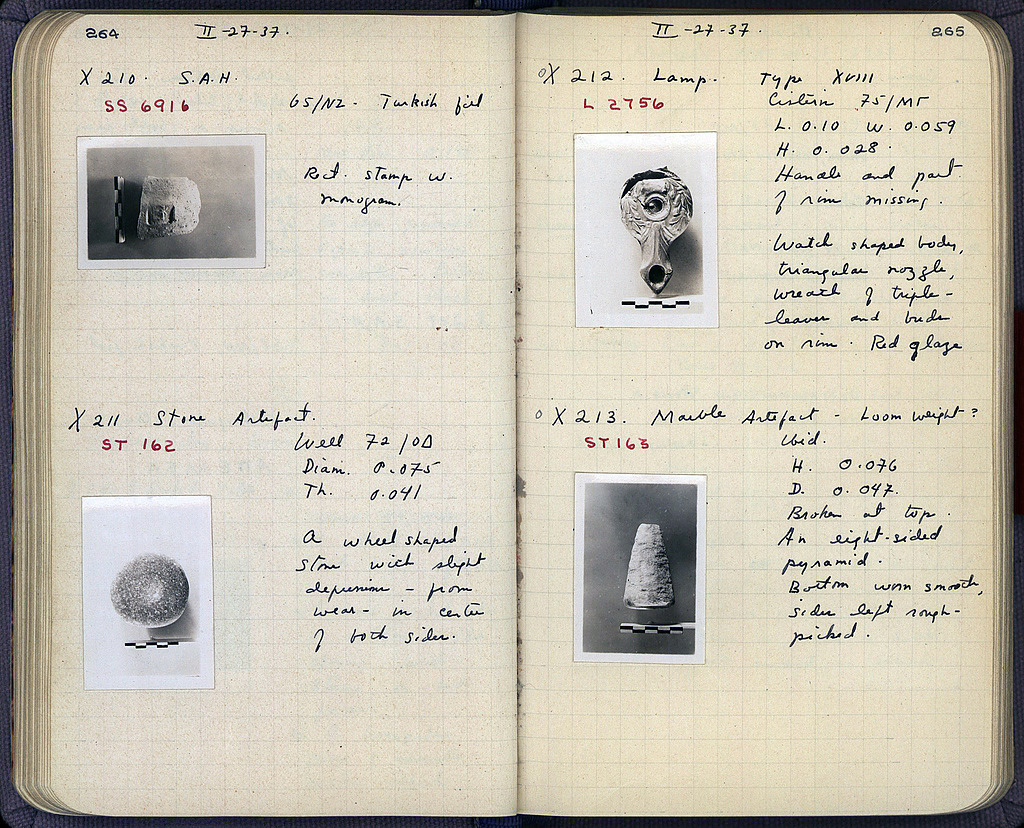 264
II-27-37.
X 210. S.A.H.
SS 6916
65/NZ - Turkish fill
Rect. stamp w.
monogram.
X 211 Stone Artefact.
ST 162
Well 72/OΔ
Diam. 0.075
Th. 0.041
A wheel shaped
stone with slight
depression - from
wear - in center
of both sides.
II-27-37.
265
X 212. Lamp. Type XVIII
L 2756
Cistern 75/ΜΓ
L. 0.10 W. 0.059
H. 0.028.
Handle and part
of rim missing.
Watch shaped body,
triangular nozzle,
wreath of triple-
leaves and buds
on rim. Red glaze
X 213. Marble Artefact - Loom weight?
ST 163
Ibid.
H. 0.076
D. 0.047.
Broken at top.
An eight-sided
pyramid.
Bottom worn smooth,
sides left rough-
picked.